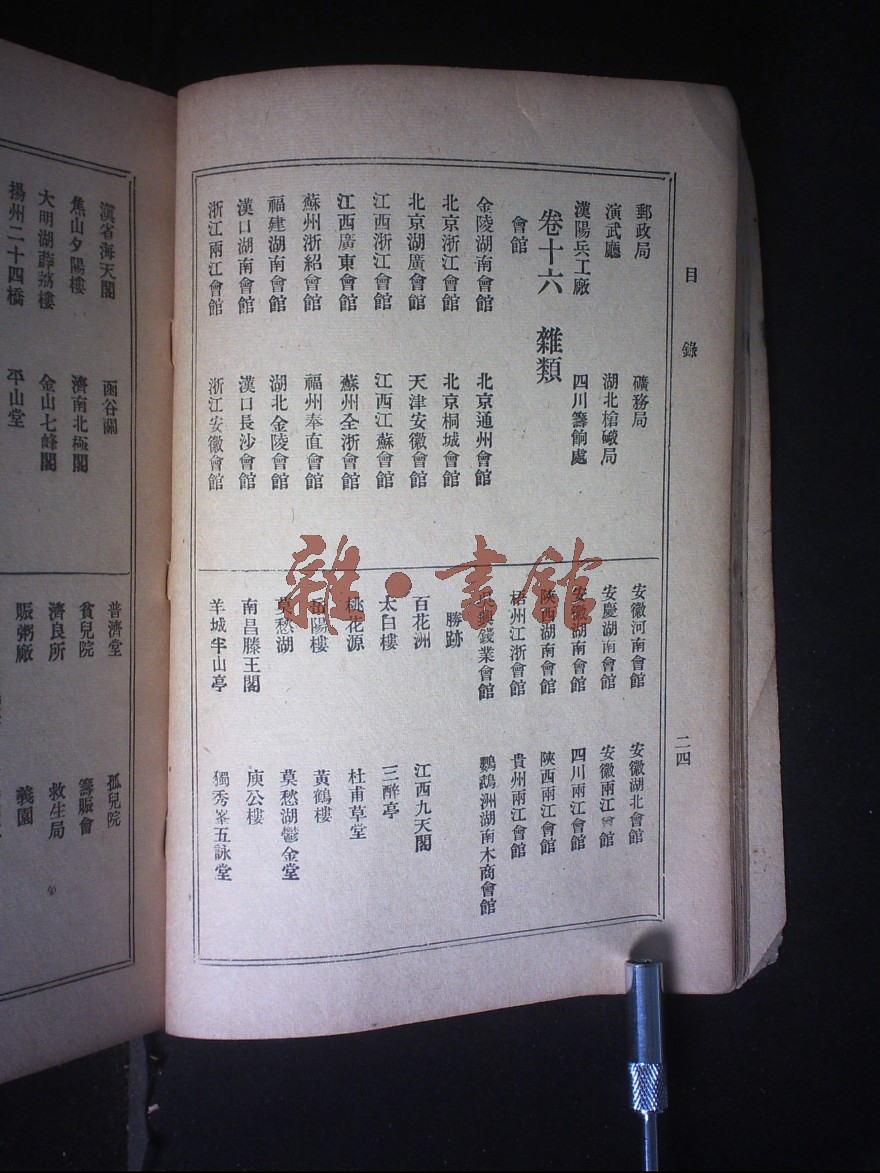 目錄
二四
郵政局
礦務局
演武廳
湖北槍礮局
漢陽兵工廠
四川籌餉處
卷十六 雜類
會館
金陵湖南會館
北京通州會館
北京浙江會館
北京桐城會館
北京湖廣會館
天津安徽會館
江西浙江會館
江西江蘇會館
江西廣東會館
蘇州全浙會館
蘇州浙紹會館
福州奉直會館
福建湖南會館
湖北金陵會館
漢口湖南會館
漢口長沙會館
浙江兩江會館
浙江安徽會館
安徽河南會館
安徽湖北會館
安慶湖南會館
安徽兩江會館
安徽湖南會館
四川兩江會館
陝西湖南會館
陝西兩江會館
梧州江浙會館
貴州兩江會館
錢業會館
鸚鵡洲湖南木商會館
勝跡
百花洲
江西九天閣
太白樓
三醉亭
桃花源
杜甫草堂
岳陽樓
黃鶴樓
莫愁湖
莫愁湖鬱金堂
南昌滕王閣
庾公樓
羊城半山亭
獨秀峯五詠堂
滇省海天閣
函谷關
焦山夕陽樓
濟南北極閣
大明湖薜荔樓
金山七峰閣
揚州二十四橋
平山堂
普濟堂
孤兒院
貧兒院
籌賑會
濟良所
救生局
賑粥廠
義園
雜·書館